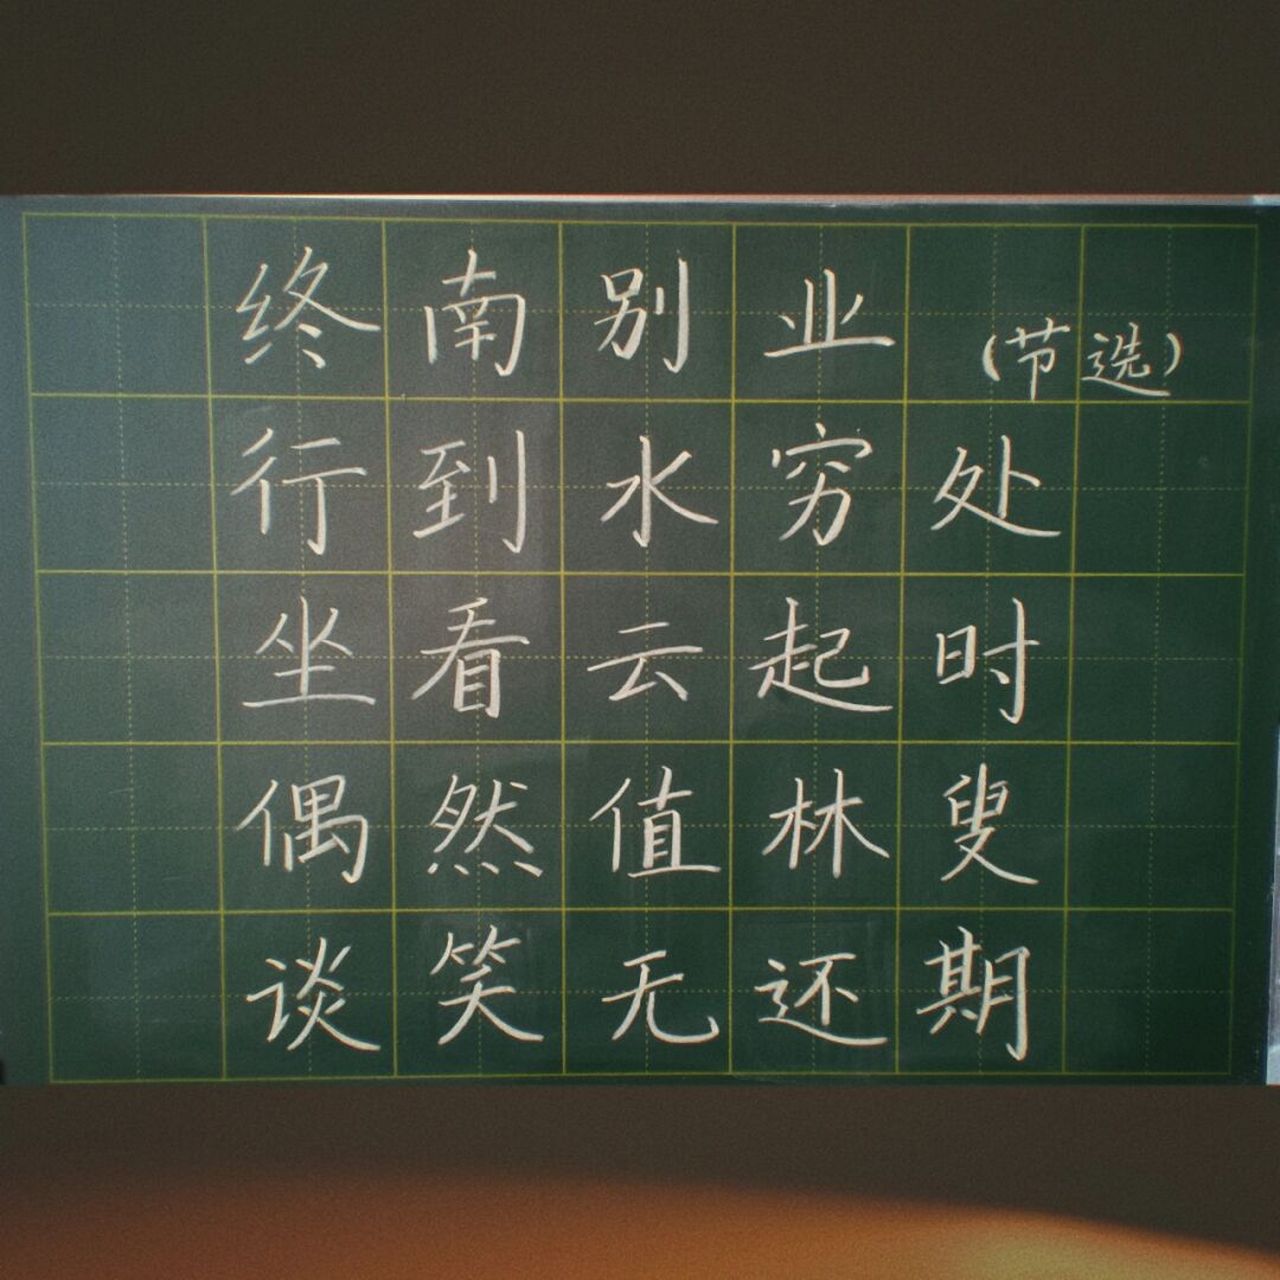 终南别业（节选）
行到水穷处
坐看云起时
偶然值林叟
谈笑无还期